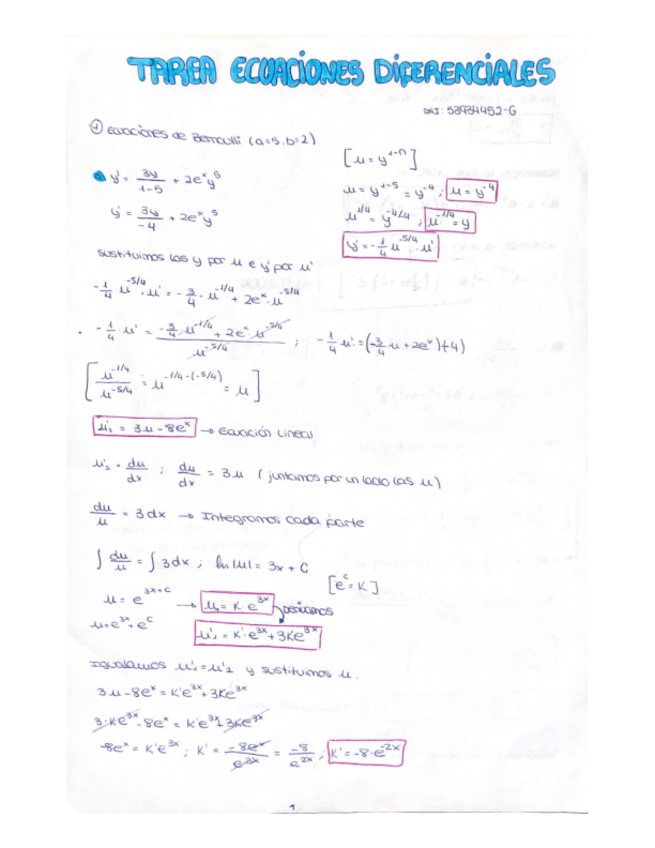 TAREA ECUACIONES DIFERENCIALES
DNI: 53934452-G
① Ecuaciones de Bernoulli (a=5, b=2)
[u = y^{1-n}]
y' = 3y/(1-5) + 2e^x y^5
u = y^{1-5} = y^{-4} ; u = y^{-4}
y' = 3y/-4 + 2e^x y^5
u^{1/4} = y^{-4/4} ; u^{-1/4} = y
y' = -1/4 u^{-5/4} · u'
sustituimos las y por u e y' por u'
-1/4 · u^{-5/4} · u' = -3/4 · u^{-1/4} + 2e^x · u^{-5/4}
-1/4 · u' = (-3/4 · u^{-1/4} + 2e^x · u^{-5/4})/u^{-5/4} ; -1/4 u' = (-3/4 u + 2e^x)(-4)
[u^{-1/4}/u^{-5/4} = u^{-1/4-(-5/4)} = u]
u'₂ = 3u - 8e^x → Ecuación Lineal
u'₂ = du/dx ; du/dx = 3u (juntamos por un lado las u)
du/u = 3dx → Integramos cada parte
∫ du/u = ∫ 3dx ; ln|u| = 3x + C
[e^c = K]
u = e^{3x+c} → u₁ = K · e^{3x} derivamos
u = e^{3x} + e^c
u'₁ = K' · e^{3x} + 3Ke^{3x}
Igualamos u'₁ = u'₂ y sustituimos u.
3u - 8e^x = K'e^{3x} + 3Ke^{3x}
3·Ke^{3x} - 8e^x = K'e^{3x} + 3Ke^{3x}
-8e^x = K'e^{3x} ; K' = -8e^x/e^{3x} = -8/e^{2x} ; K' = -8·e^{-2x}
1